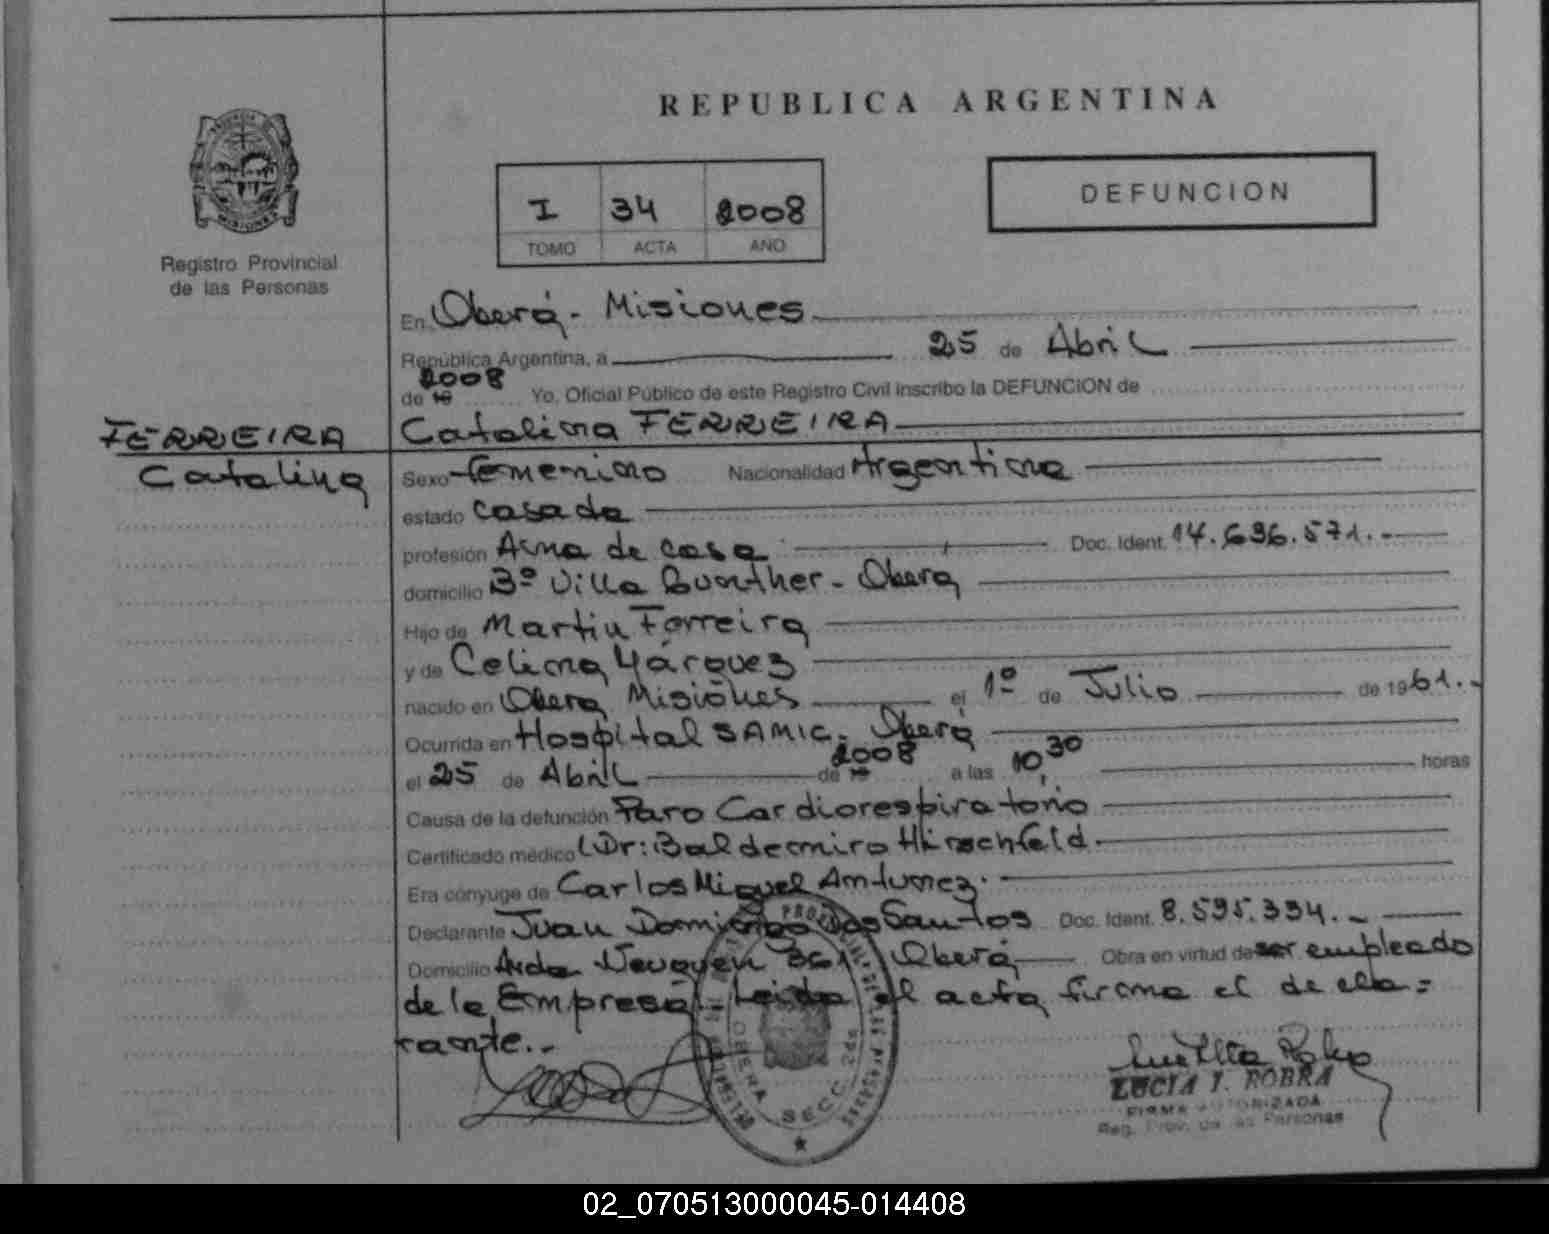 REPUBLICA ARGENTINA
I 34 2008
TOMO ACTA AÑO
DEFUNCION
Registro Provincial
de las Personas
En Oberá - Misiones
República Argentina, a 25 de Abril
2008
de 19 Yo, Oficial Público de este Registro Civil inscribo la DEFUNCION de
FERREIRA
Catalina
Catalina FERREIRA
Sexo femenino Nacionalidad Argentina
estado casada
profesión Ama de casa Doc. Ident. 14.636.571.-
domicilio Bº Villa Gunther - Oberá
Hijo de Martín Ferreira
y de Celina Márquez
nacido en Oberá Misiones el 1º de Julio de 1961.-
Ocurrida en Hospital SAMIC. Oberá
2008
el 25 de Abril de 19 a las 10,30 horas
Causa de la defunción Paro Cardiorespiratorio
Certificado médico Dr: Baldemiro Hirschfeld
Era cónyuge de Carlos Miguel Antunez.
Declarante Juan Domingo Dos Santos Doc. Ident. 8.595.334.-
Domicilio Avda Neuquén Oberá Obra en virtud de ser empleado
de la Empresa - Leída el acta firma el decla=
rante.-
LUCIA T. ROBRA
FIRMA AUTORIZADA
Reg. Prov. de las Personas
OBERA SECC. 2da
02_070513000045-014408